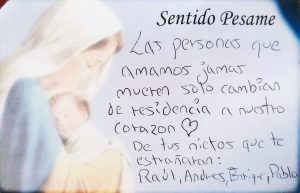 Sentido Pesame
Las personas que
amamos jamas
mueren solo cambian
de residencia a nuestro
corazon ♡
De tus nietos que te
extrañaran:
Raúl, Andres, Enrique, Pablo